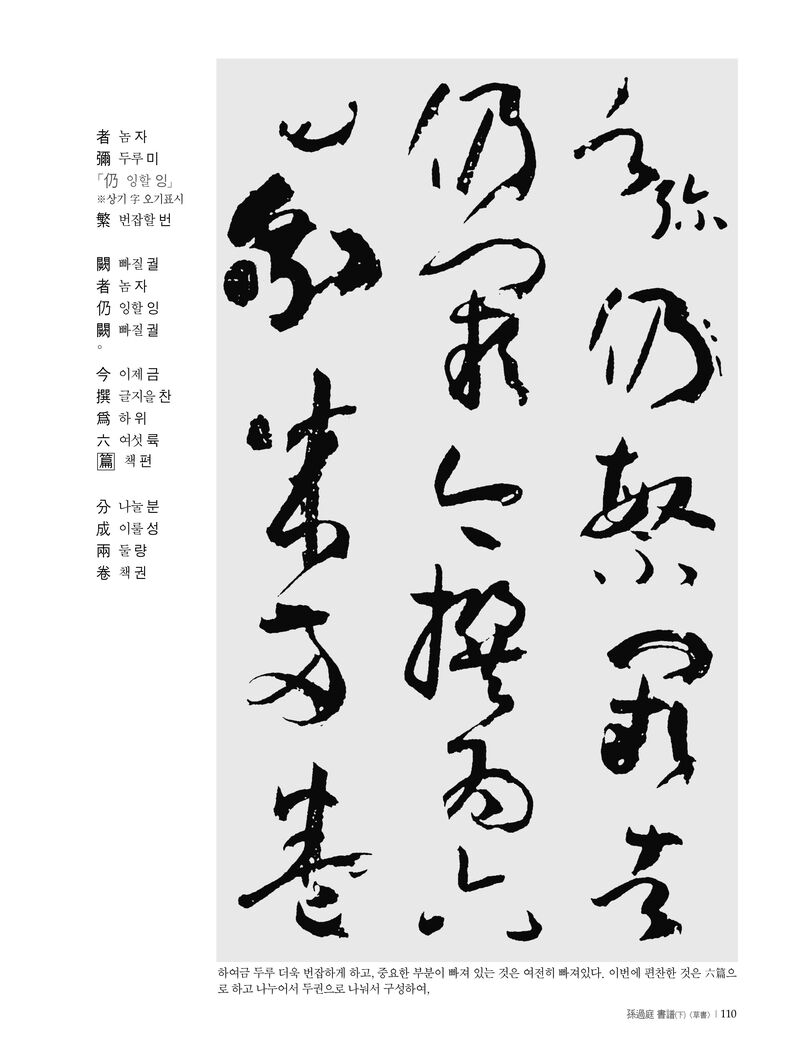 者 놈 자
彌 두루 미
「仍 잉할 잉」
※상기 字 오기표시
繁 번잡할 번
闕 빠질 궐
者 놈 자
仍 잉할 잉
闕 빠질 궐
。
今 이제 금
撰 글지을 찬
爲 하 위
六 여섯 륙
篇 책 편
分 나눌 분
成 이룰 성
兩 둘 량
卷 책 권
者彌仍繁闕者
仍闕今撰爲六
兩卷
하여금 두루 더욱 번잡하게 하고, 중요한 부분이 빠져 있는 것은 여전히 빠져있다. 이번에 편찬한 것은 六篇으
로 하고 나누어서 두권으로 나눠서 구성하여,
孫過庭 書譜(下)〈草書〉 | 110